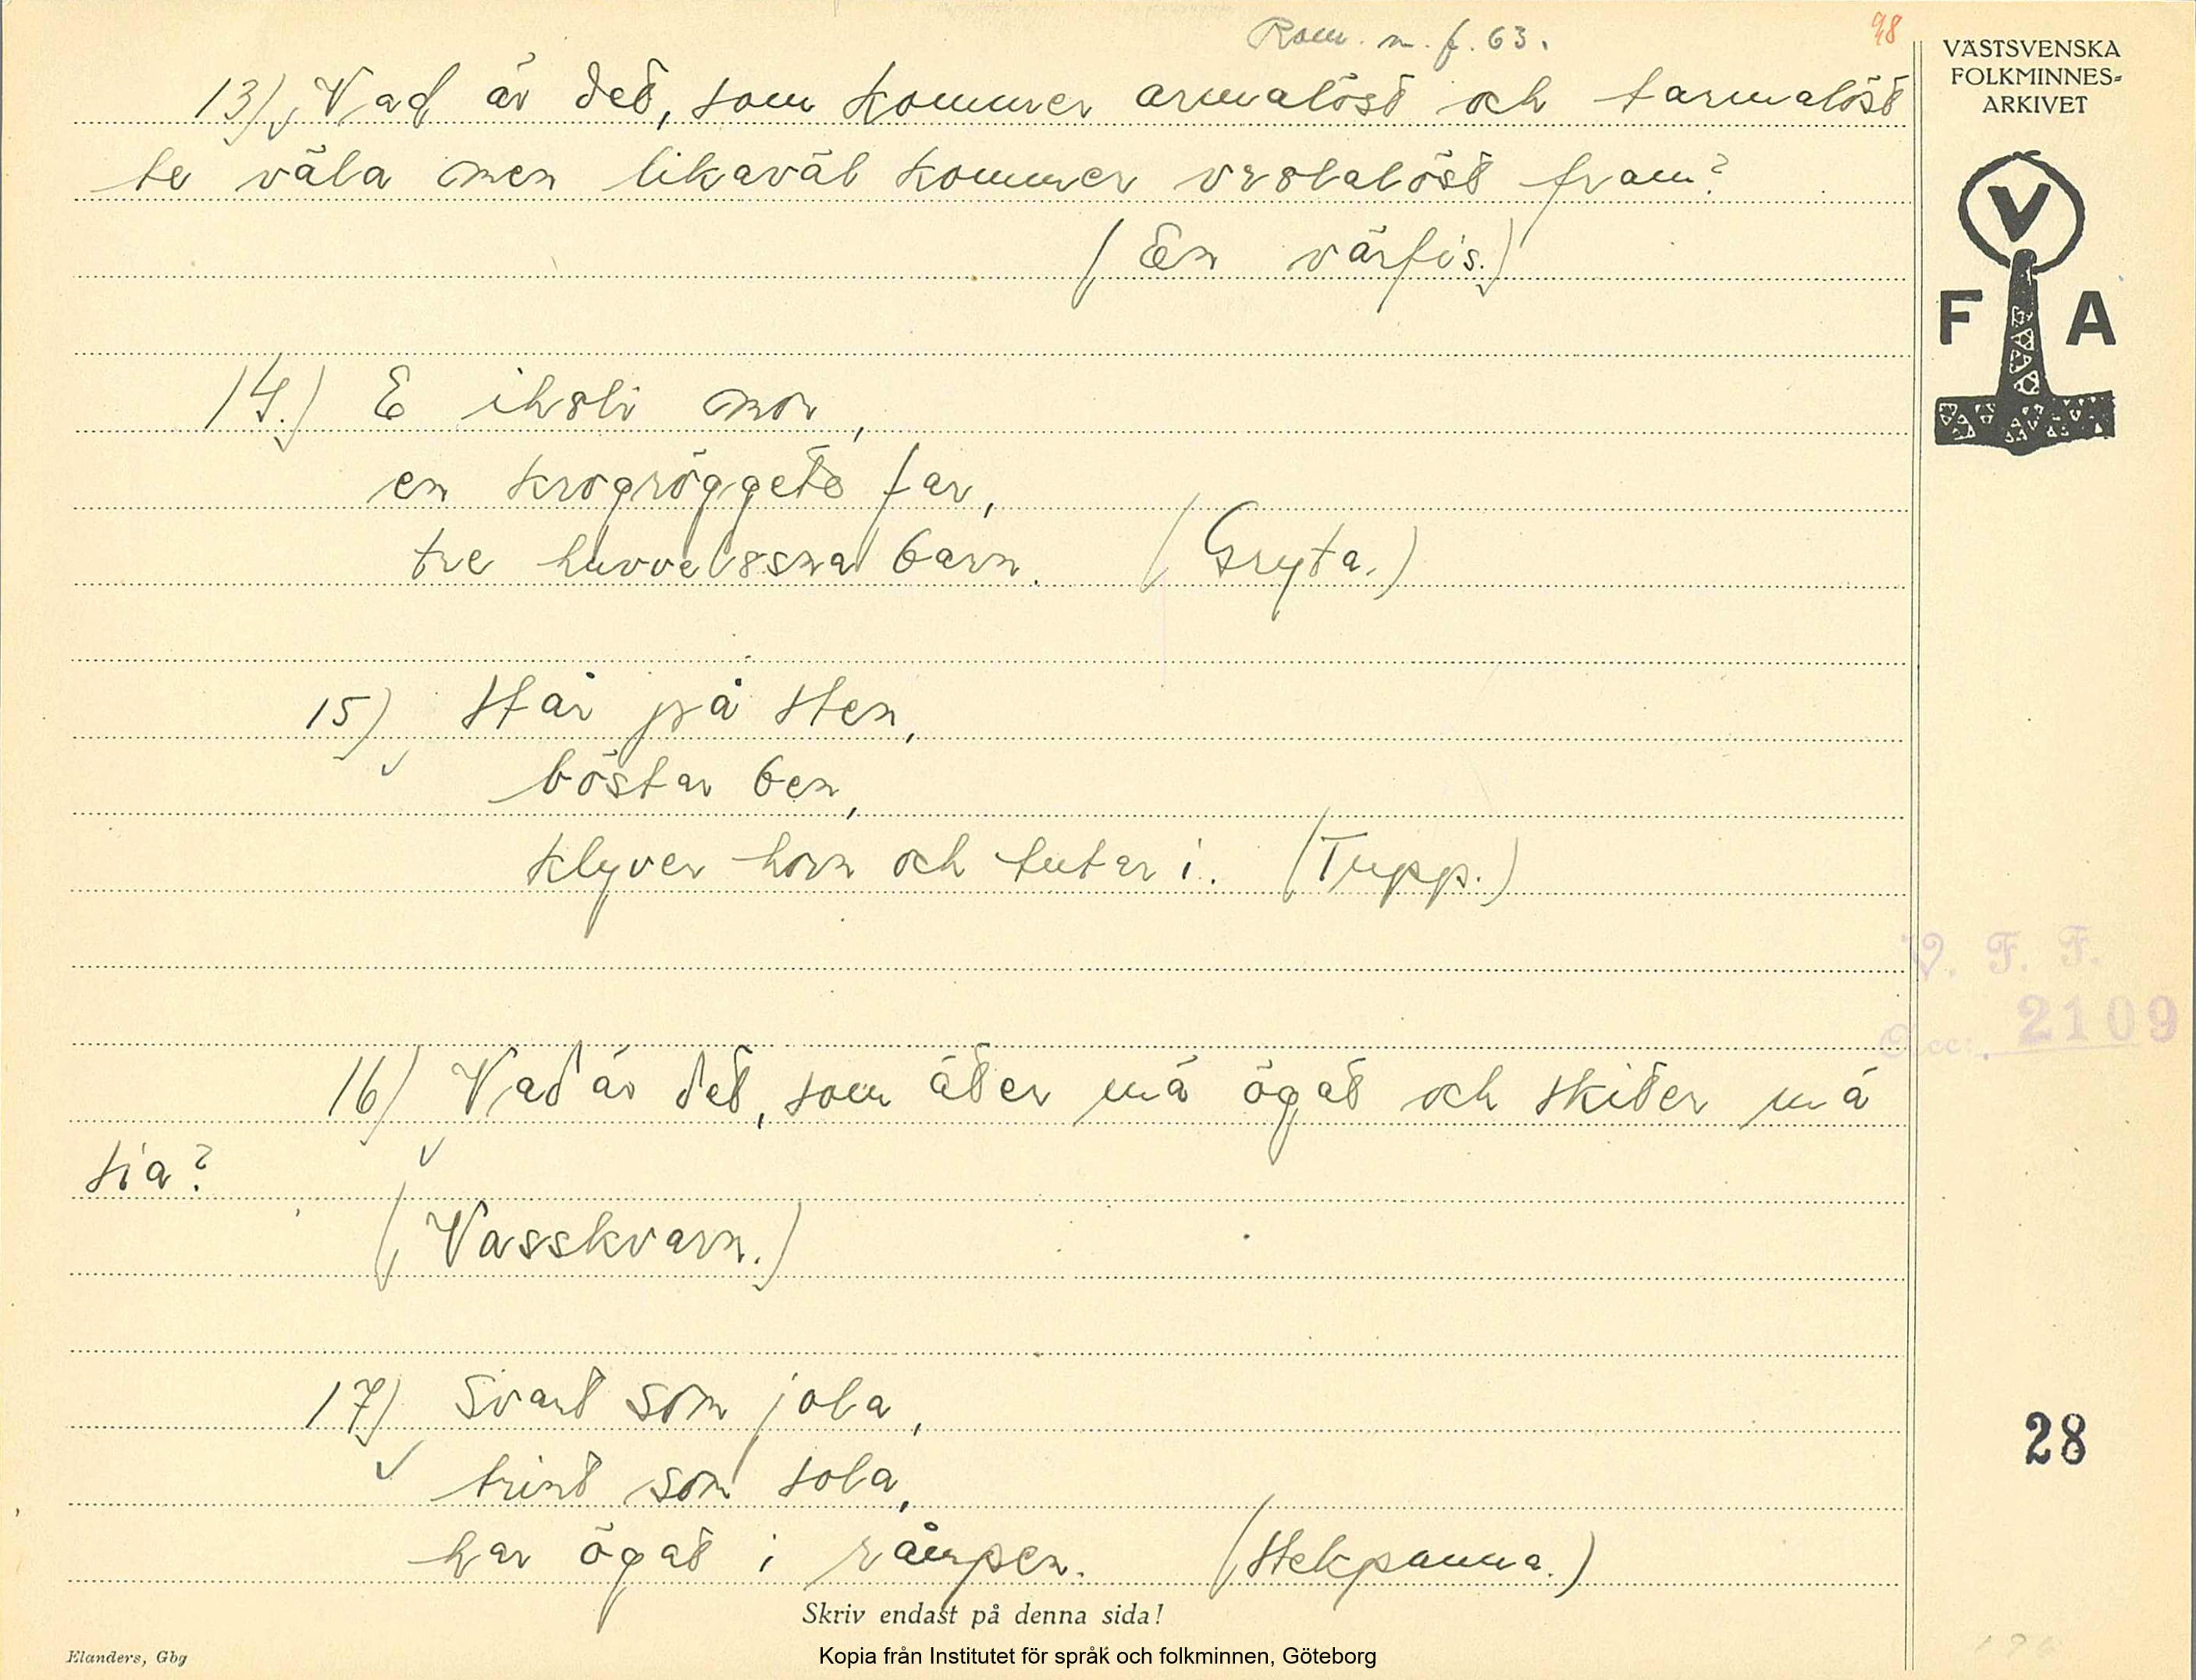 Rom. m. f. 63.
98
VÄSTSVENSKA
FOLKMINNES-
ARKIVET
13) Vad är det, som kommer armalöst och tarmalöst
te väla men likaväl kommer vrålalöst fram?
(En värfis.)
V
F A
14.) E ihåli mor,
en krogröggete far,
tre huvvelösna barn. (Gryta.)
15) Står på sten,
böstar ben,
klyver horn och tutar i. (Tupp.)
V. F. F.
Acc: 2109
16) Vad är det, som äter mä ögat och skiter mä
sia?
(Vasskvarn.)
17) Svart som jola,
28
trint som sola,
har ögat i råmpen. (Stekpanna.)
Skriv endast på denna sida!
Elanders, Gbg
Kopia från Institutet för språk och folkminnen, Göteborg